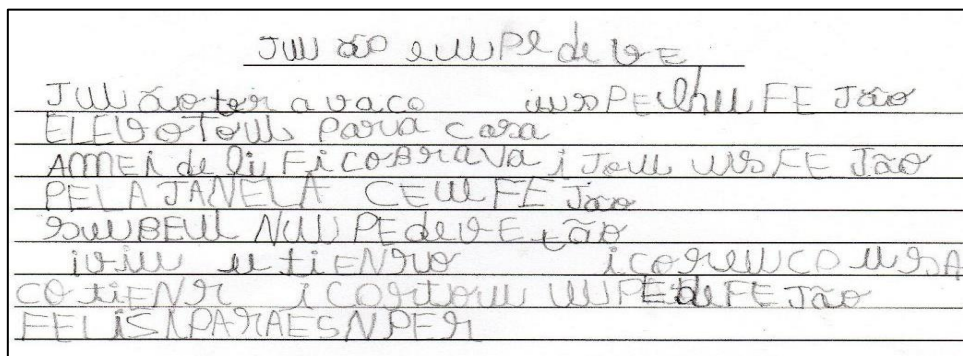 JUU ÃO E UUPE de VE
JUU ão ter a vaco uuspelhu FE João
ELEVOTOUU Parua casa
AMMEi de li FicoBrava i Jouu uus FE João
PELA JANELA CEUUFE João
suuBEUU NUUPEdeVE tão
iviuu uutiENRO icoreuuco uusA
COtiENR i CORtouu UUPE de FE João
FELISNPARAESNPER